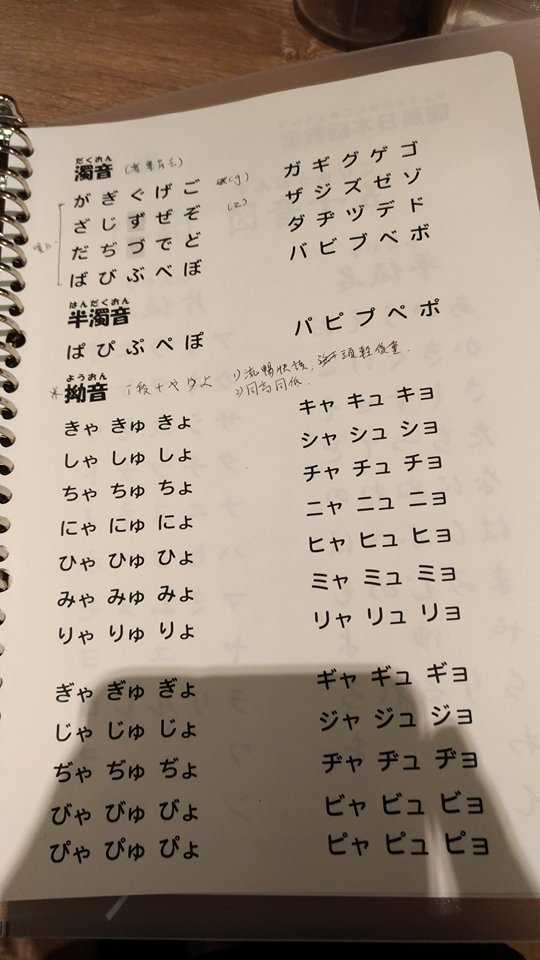 だくおん
濁音
がぎぐげご (g) ガギグゲゴ
ざじずぜぞ (z) ザジズゼゾ
だぢづでど ダヂヅデド
ばびぶべぼ バビブベボ
はんだくおん
半濁音
ぱぴぷぺぽ パピプペポ
ようおん
拗音 i段+やゆよ 1)流暢快讀,
2)同高同低.
きゃ きゅ きょ キャ キュ キョ
しゃ しゅ しょ シャ シュ ショ
ちゃ ちゅ ちょ チャ チュ チョ
にゃ にゅ にょ ニャ ニュ ニョ
ひゃ ひゅ ひょ ヒャ ヒュ ヒョ
みゃ みゅ みょ ミャ ミュ ミョ
りゃ りゅ りょ リャ リュ リョ
ぎゃ ぎゅ ぎょ ギャ ギュ ギョ
じゃ じゅ じょ ジャ ジュ ジョ
ぢゃ ぢゅ ぢょ ヂャ ヂュ ヂョ
びゃ びゅ びょ ビャ ビュ ビョ
ぴゃ ぴゅ ぴょ ピャ ピュ ピョ